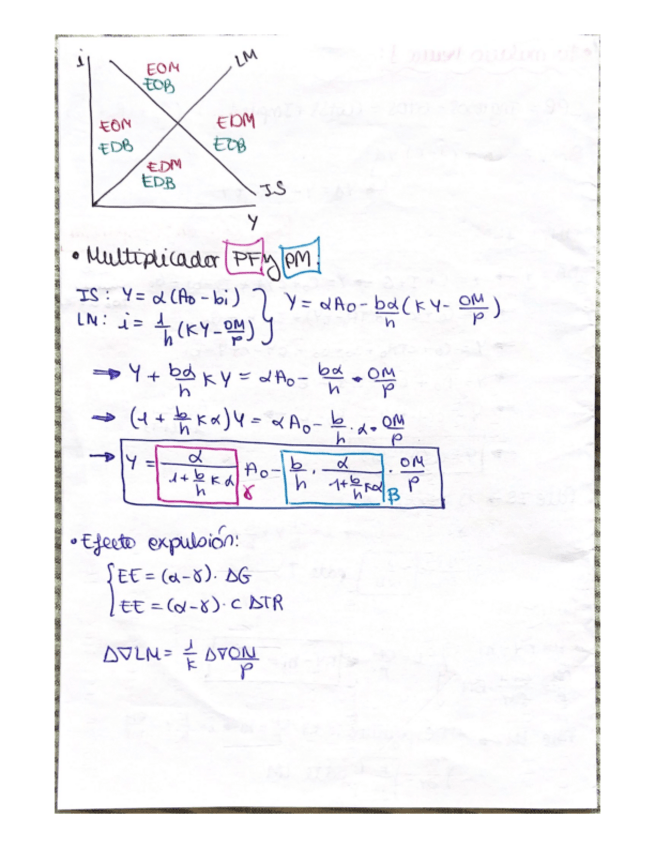 i
LM
EOM
EOB
EOM
EDB
EDM
EOB
EDM
EDB
IS
Y
• Multiplicador PF y PM.
IS: Y = α (A₀ - bi)
LM: i = 1/h (KY - OM/P)
Y = αA₀ - bα/h (KY - OM/P)
→ Y + bα/h KY = αA₀ - bα/h · OM/P
→ (1 + b/h Kα) Y = αA₀ - b/h · α · OM/P
→ Y = α/(1 + b/h Kα) A₀ - b/h · α/(1 + b/h Kα) · OM/P
γ β
• Efecto expulsión:
EE = (α - γ) · ΔG
EE = (α - γ) · C ΔTR
Δ∇LM = 1/K Δ∇OM/P